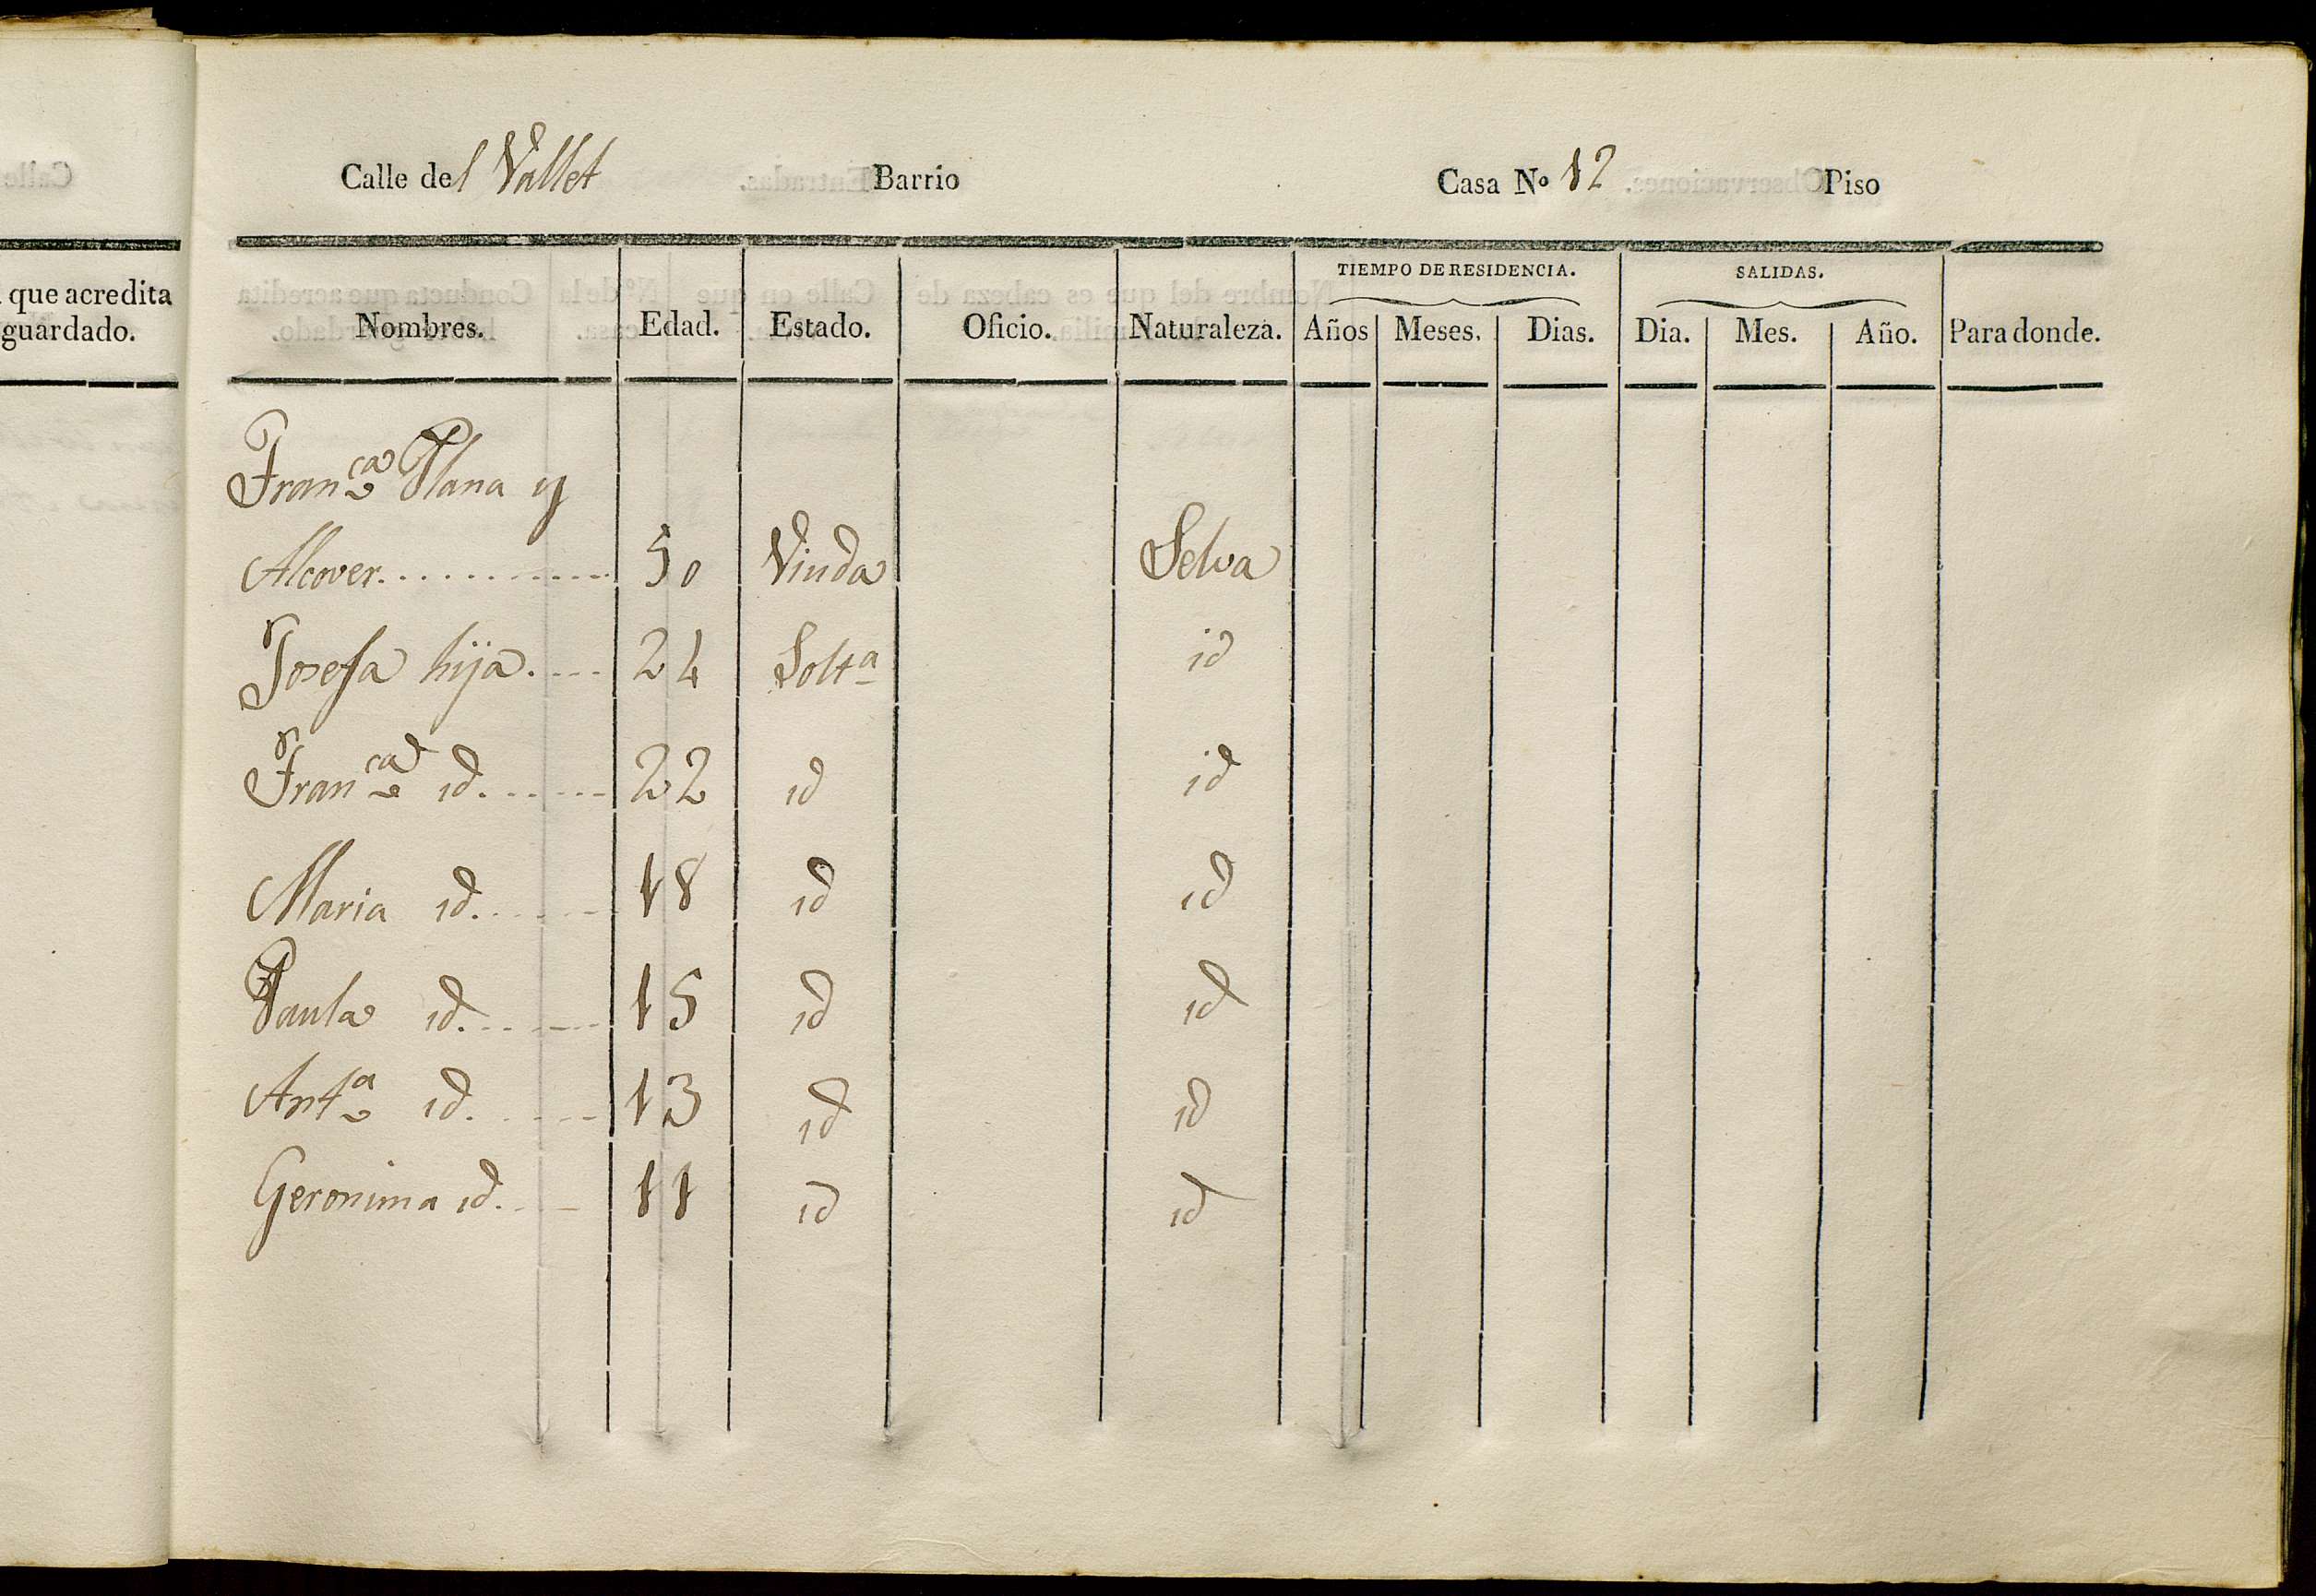 que acredita
guardado.
Calle del Vallet Barrio Casa Nº 12 Piso
TIEMPO DE RESIDENCIA. SALIDAS.
Nombres. Edad. Estado. Oficio. Naturaleza. Años Meses. Dias. Dia. Mes. Año. Para donde.
Fran.ca Plana y
Alcover........... 50 Viuda Selva
Josefa hija.... 24 Solt.a id
Fran.ca id...... 22 id id
Maria id...... 18 id id
Paula id...... 15 id id
Ant.a id...... 13 id id
Geronima id.... 11 id id